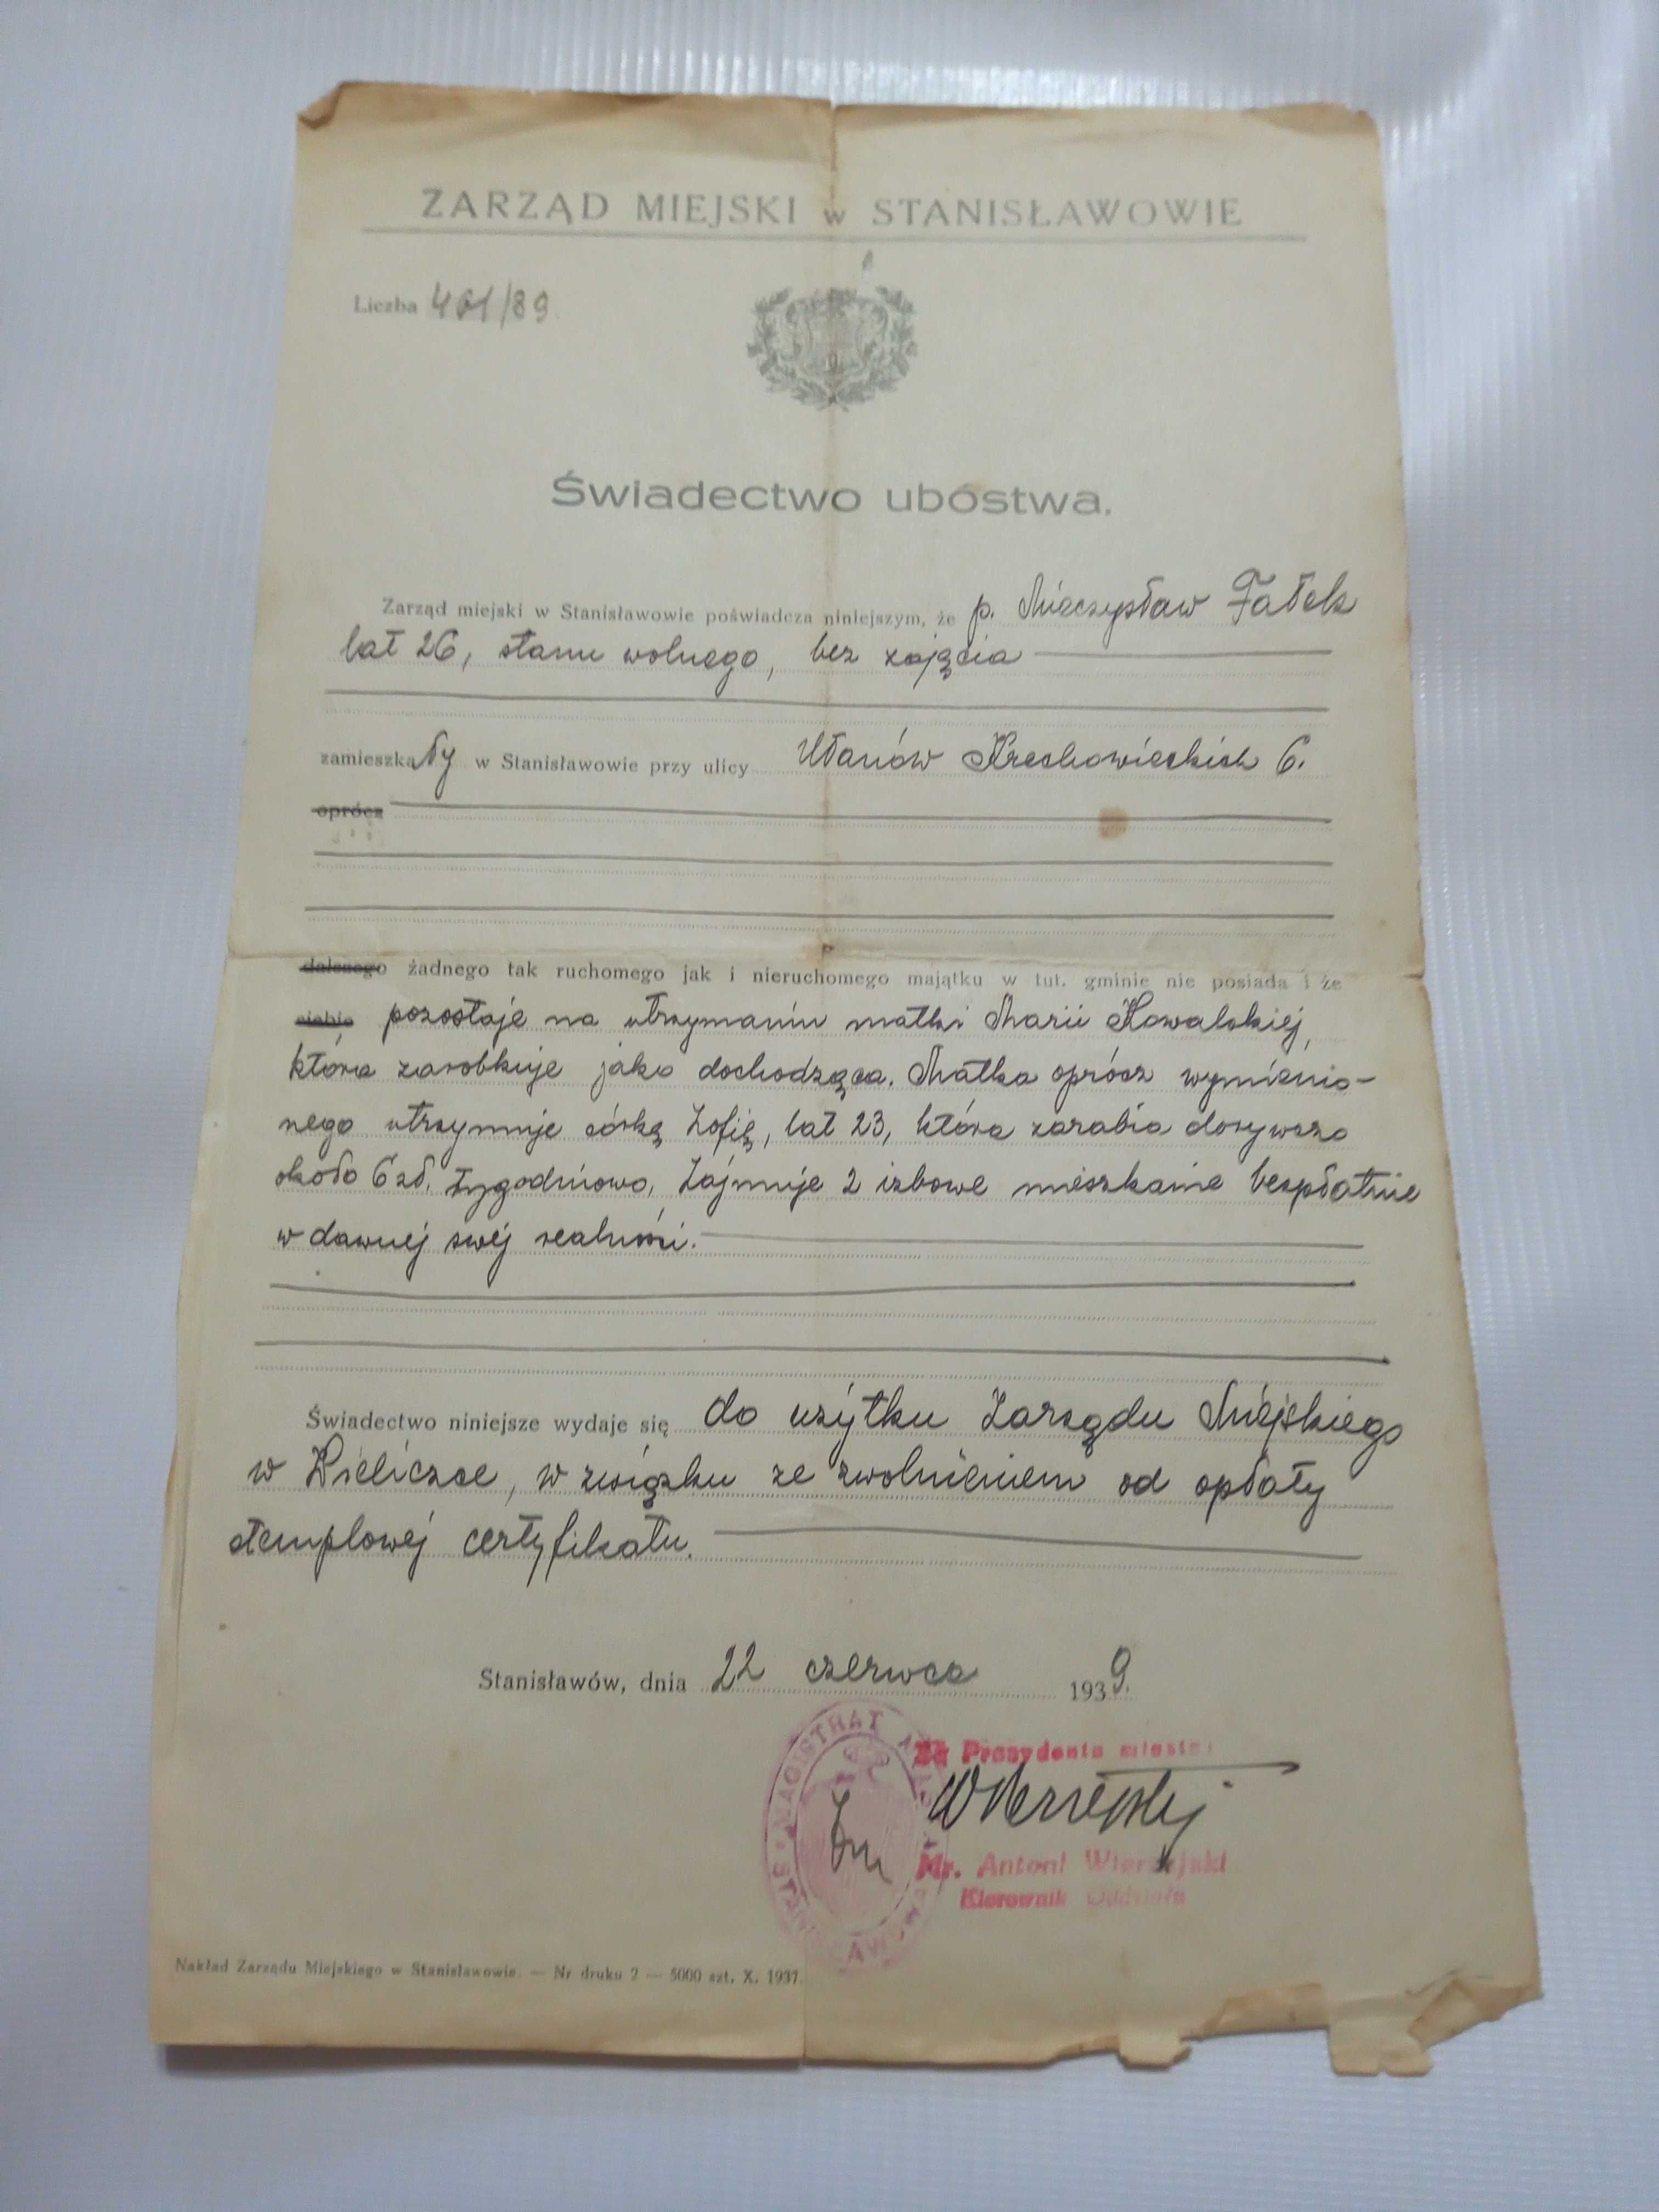 ZARZĄD MIEJSKI w STANISŁAWOWIE
Liczba 461/39
Świadectwo ubóstwa.
Zarząd miejski w Stanisławowie poświadcza niniejszym, że p. Mieczysław Fałek
lat 26, stanu wolnego, bez zajęcia
zamieszkały w Stanisławowie przy ulicy Ułanów Krechowieckich 6.
oprócz
dalszego żadnego tak ruchomego jak i nieruchomego majątku w tut. gminie nie posiada i że
siebie pozostaje na utrzymaniu matki Marii Kowalskiej,
która zarobkuje jako dochodząca. Matka oprócz wymienio-
nego utrzymuje córkę Zofię, lat 23, która zarabia dorywczo
około 6 zł. tygodniowo, Zajmuje 2 izbowe mieszkanie bezpłatnie
w dawnej swej realności.
Świadectwo niniejsze wydaje się do użytku Zarządu Miejskiego
w Wieliczce, w związku ze zwolnieniem od opłaty
stemplowej certyfikatu.
Stanisławów, dnia 22 czerwca 1939.
MAGISTRAT STANISŁAWOWA
Za Prezydenta miasta:
Mr. Antoni Wierzejski
Kierownik Oddziału
Nakład Zarządu Miejskiego w Stanisławowie. — Nr druku 2 — 5000 szt. X. 1937.